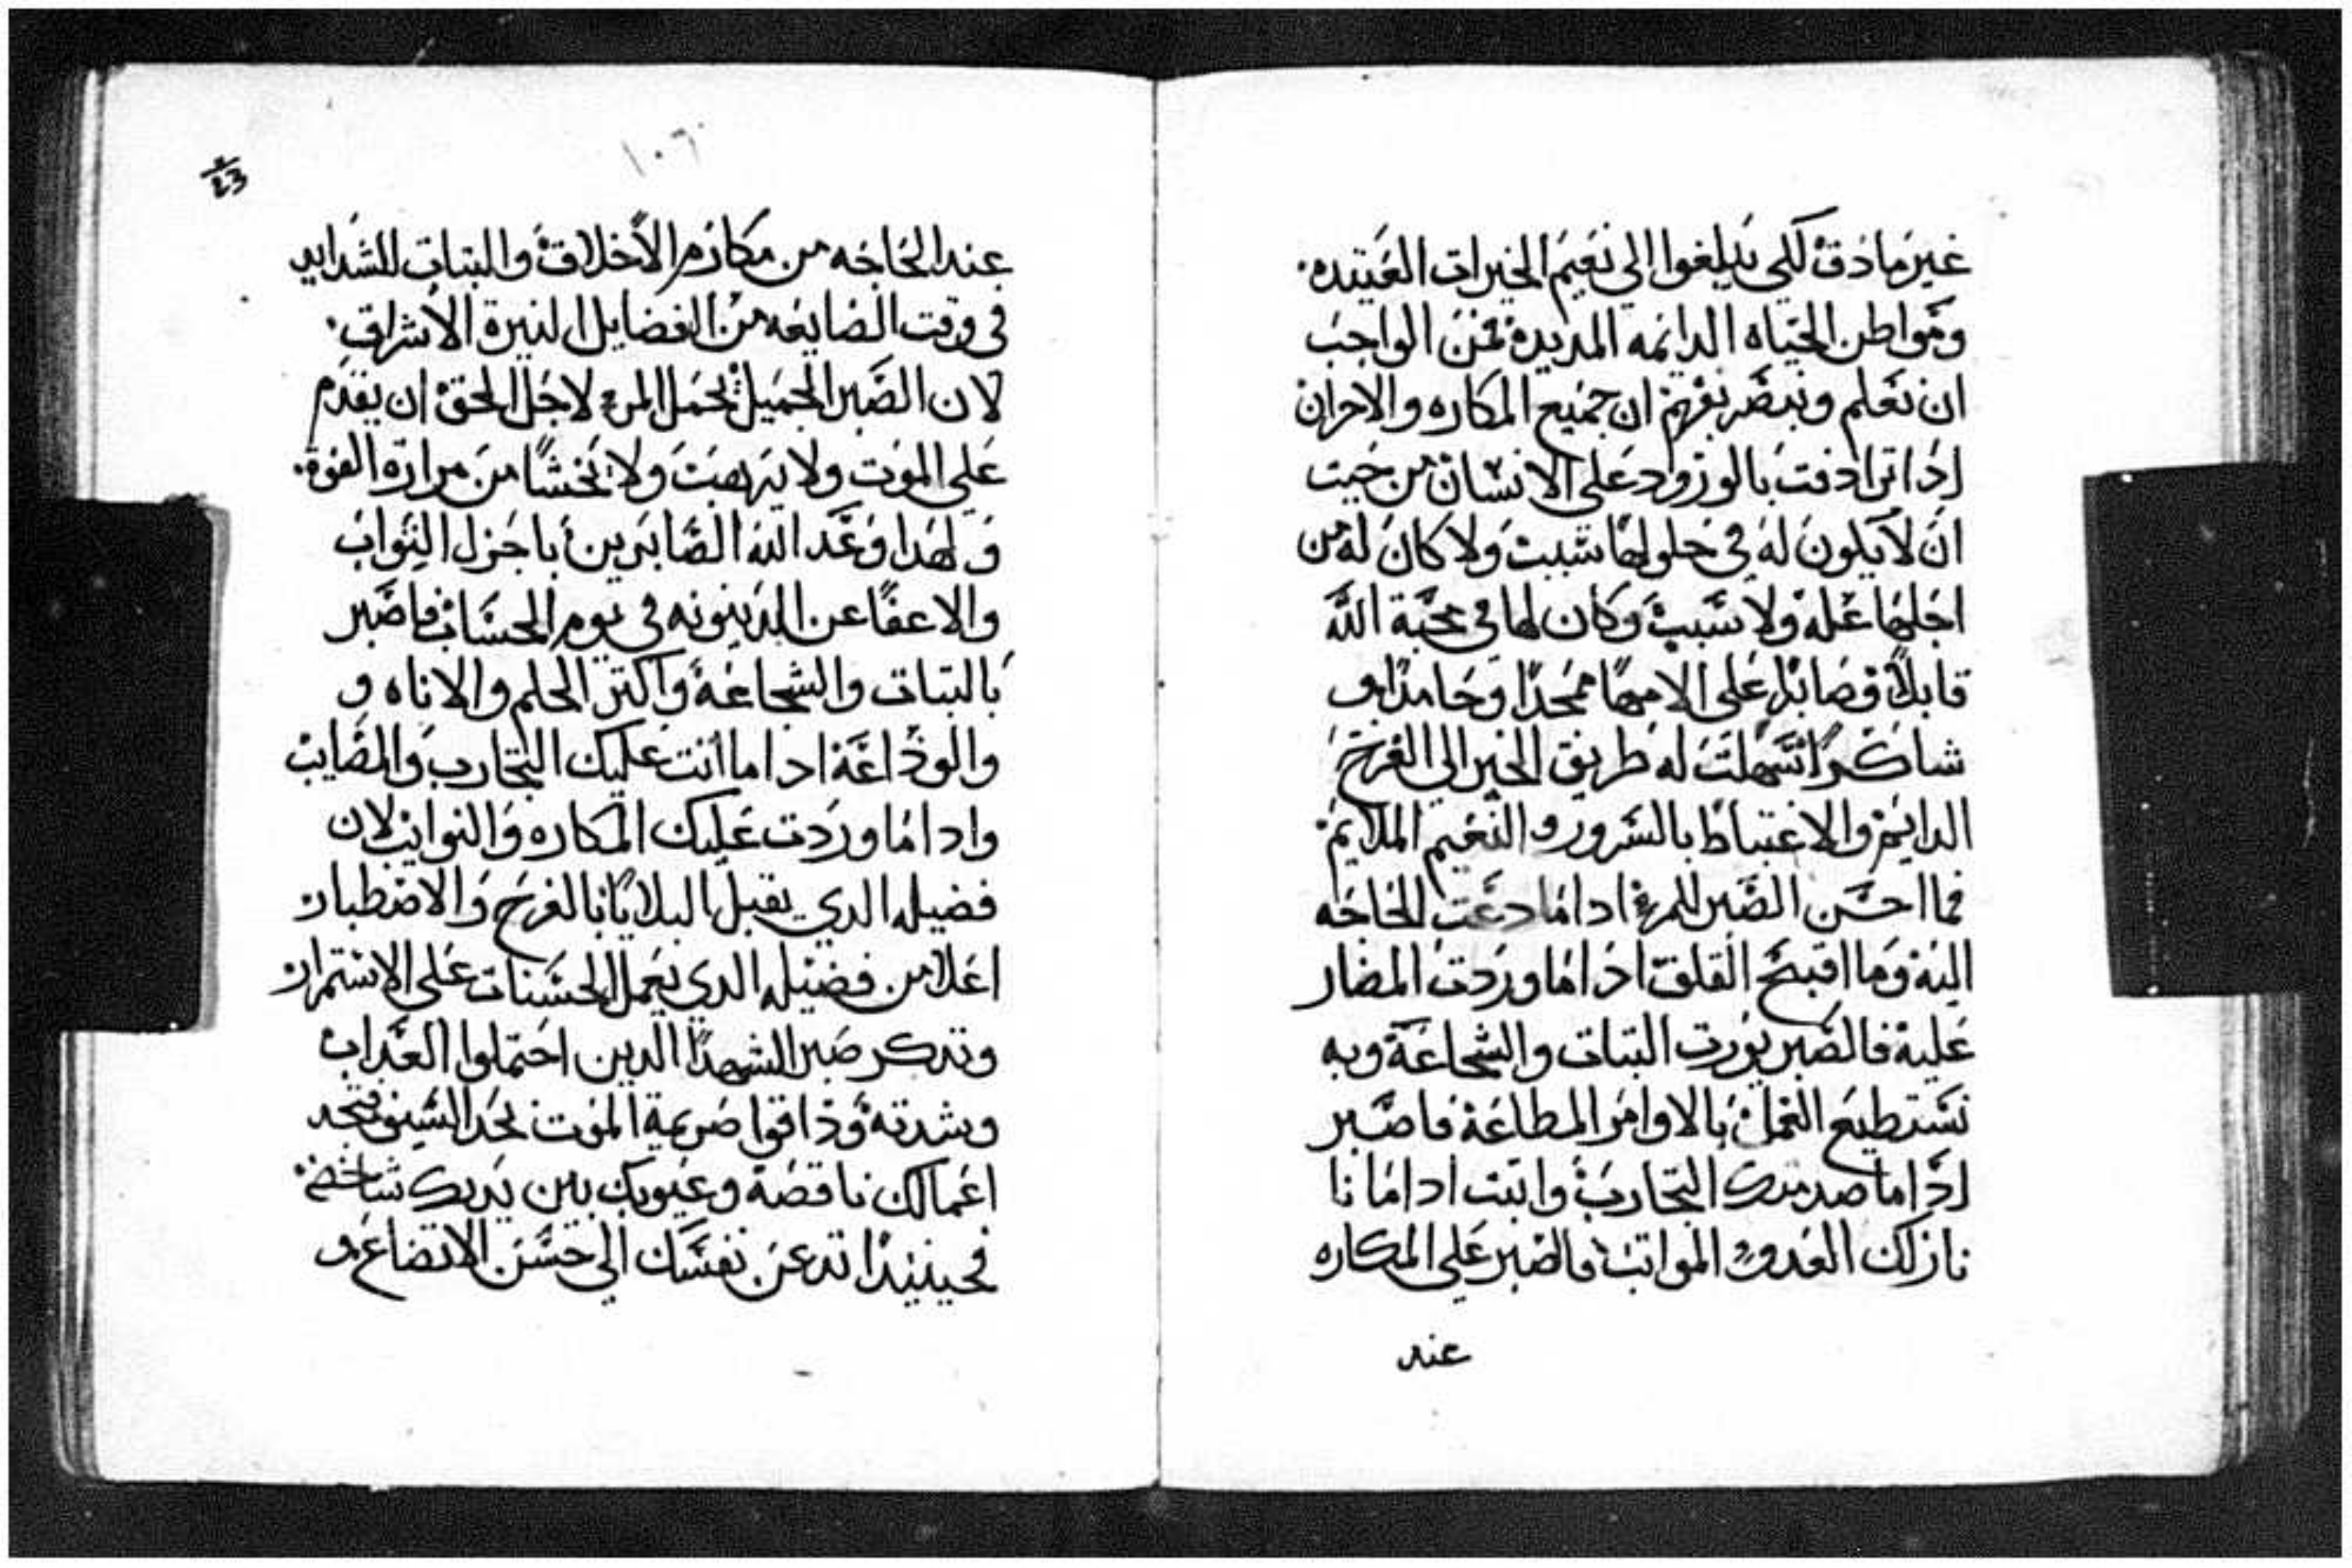 غير مادق لكي يبلغوا الي نعيم الخيرات العتيده.
ومواطن الحياه الدايمه المديدة فمن الواجب
ان نعلم ونبصر بفهم ان جميع المكاره والاحزان
اذا ترادفت بالورود علي الانسان من حيت
ان لا يكون له في حلولها سبب ولا كان له من
اجلها عله ولا سبب وكان لها في محبة الله
قابلاً وصابرًا علي الامها ممجدًا وحامدًا و
شاكرًا تسهلت له طريق الخير الي الفرح
الدايم والاغتباط بالسرور والنعيم الملايم
فما احسن الصبر للمرء اداما دعت الحاجه
اليه وما اقبح القلق اذاما وردت المضار
عليه فالصبر يورت التبات والشجاعة وبه
نستطيع العمل بالاوامر المطاعة فاصبر
اذاما صدمتك التجارب واتبت اداما نا
نازلك العدو المواتب فالصبر علي المكاره
عند
١٠٦
23
عند الحاجه من مكارم الاخلاق والتبات للشدايد
في وقت الضايعه من الفضايل النيرة الاشراق.
لان الصبر الجميل يحمل المرء لاجل الحق ان يقدم
علي الموت ولا يرهب ولا يخشا من مرارة القوة.
ولهدا وعد الله الصابرين باجزل التواب
والاعفا عن الدينونه في يوم الحساب فاصبر
بالتبات والشجاعة واكتر الحلم والاناه و
والوداعة اداما اتت عليك التجارب والمصايب
واداما وردت عليك المكاره والنوايب لان
فضيله الدي يقبل البلايا بالفرح والاصطبار
اعلا من فضيله الدي يعمل الحسنات علي الاستمرار
وتدكر صبر الشهدا الدين احتملوا العداب
وبشدته وذاقوا صريمة الموت بحد السيف فتجد
اعمالك ناقصة وعيوبك بين يديك شاخصة
فحينيدا تدعن نفسك الي حسن الاتضاع و